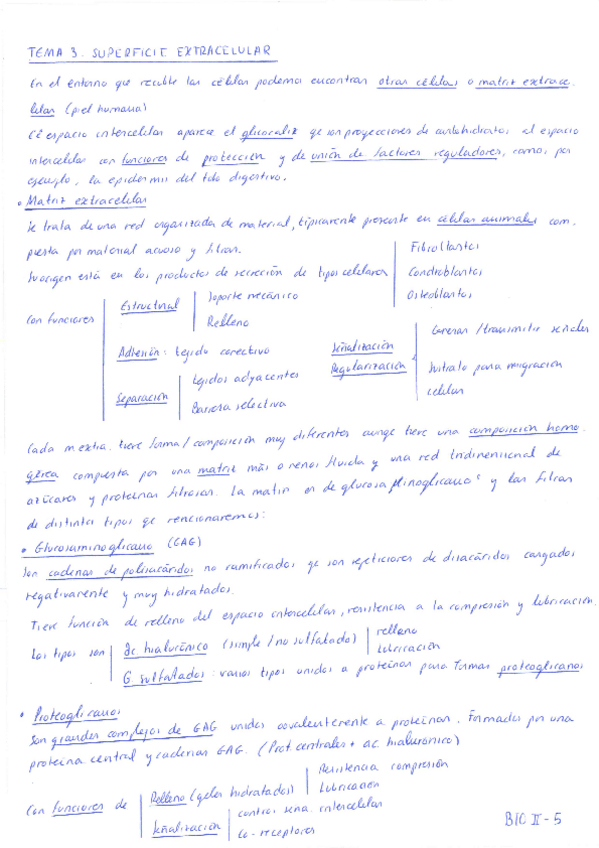 TEMA 3. SUPERFICIE EXTRACELULAR
En el entorno que recubre las células podemos encontrar otras células o matriz extrace
lular (piel humana)
El espacio intercelular aparece el glicocalix qe son proyecciones de carbohidratos al espacio
intercelular con funciones de protección y de unión de factores reguladores, como, por
ejemplo, la epidermis del tubo digestivo.
• Matriz extracelular
Se trata de una red organizada de material, típicamente presente en células animales com
puesta por material acuoso y fibras.
Su origen está en los productos de secreción de tipos celulares
Fibroblastos
Condroblastos
Osteoblastos
Con funciones
Estructural
Soporte mecánico
Relleno
Adhesión: tejido conectivo
Separación
tejidos adyacentes
Barrera selectiva
Señalización
Regularización
Generar / transmitir señales
Sustrato para migración
celular
Cada m.extra. tiene forma / composición muy diferentes aunqe tiene una composición homo
génea compuesta por una matriz más o menos fluida y una red tridimensional de
azúcares y proteínas fibrosas. La matriz es de glucosaminoglicanos y las fibras
de distintos tipos qe mencionaremos:
• Glucosaminoglicano (GAG)
Son cadenas de polisacáridos no ramificados qe son repeticiones de disacáridos cargados
negativamente y muy hidratados.
Tiene función de relleno del espacio intercelular, resistencia a la compresión y lubricación.
Los tipos son
ác. hialurónico (simple / no sulfatado)
relleno
Lubricación
G. sulfatados: varios tipos unidos a proteínas para formar proteoglicanos
• Proteoglicanos
Son grandes complejos de GAG unidos covalentemente a proteínas. Formados por una
proteína central y cadenas GAG. (Prot. centrales + ac. hialuronico)
Con funciones de
Relleno (geles hidratados)
Resistencia compresión
Lubricación
Señalización
control seña. intercelular
Co-receptores
BIO II - 5